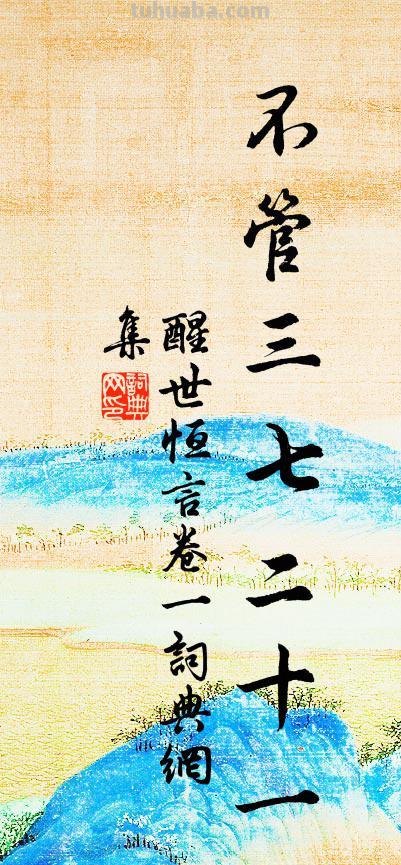 tuhuaba.com
不管三七二十一
醒世恒言卷一詞典網
集
詞典
网印